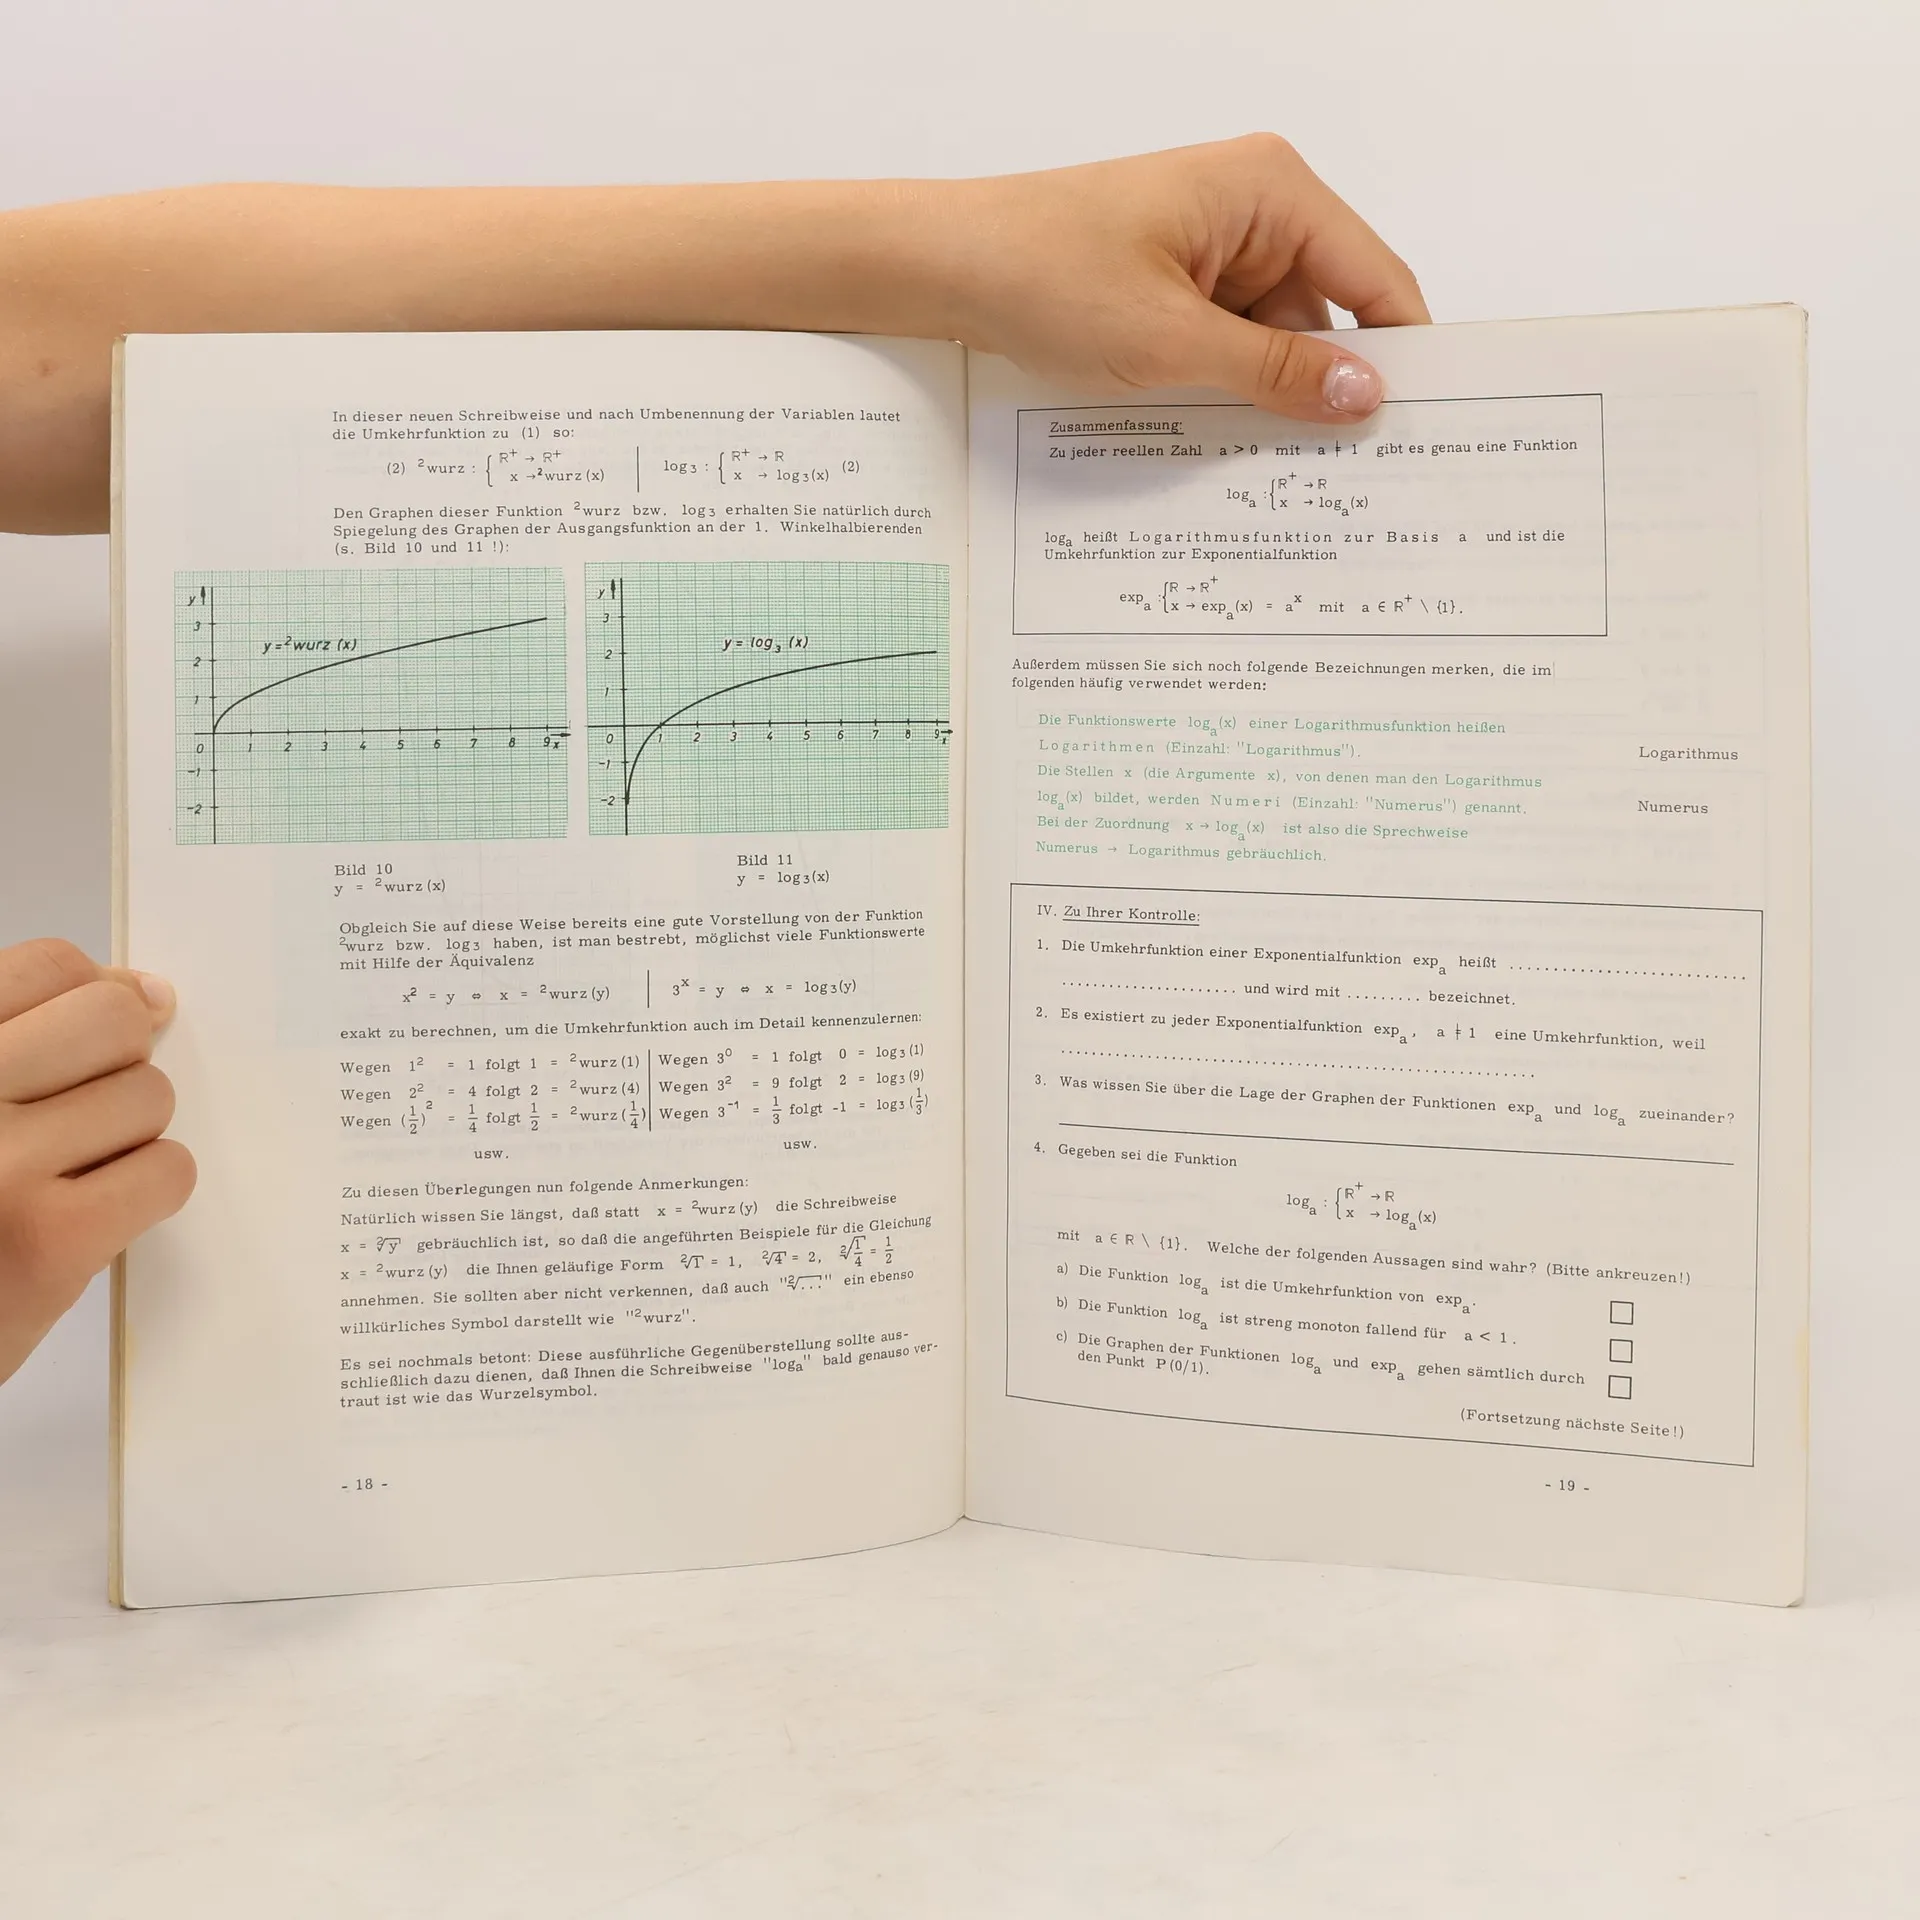 In dieser neuen Schreibweise und nach Umbenennung der Variablen lautet
die Umkehrfunktion zu (1) so:
(2) ²wurz : { R⁺ → R⁺ | log₃ : { R⁺ → R (2)
x → ²wurz (x) | x → log₃(x)
Den Graphen dieser Funktion ²wurz bzw. log₃ erhalten Sie natürlich durch
Spiegelung des Graphen der Ausgangsfunktion an der 1. Winkelhalbierenden
(s. Bild 10 und 11 !):
y
3
2
1
0 1 2 3 4 5 6 7 8 9 x
-1
-2
y = ²wurz (x)
y
3
2
1
0 1 2 3 4 5 6 7 8 9 x
-1
-2
y = log₃ (x)
Bild 10
y = ²wurz (x)
Bild 11
y = log₃(x)
Obgleich Sie auf diese Weise bereits eine gute Vorstellung von der Funktion
²wurz bzw. log₃ haben, ist man bestrebt, möglichst viele Funktionswerte
mit Hilfe der Äquivalenz
x² = y ⇔ x = ²wurz (y) | 3ˣ = y ⇔ x = log₃(y)
exakt zu berechnen, um die Umkehrfunktion auch im Detail kennenzulernen:
Wegen 1² = 1 folgt 1 = ²wurz (1) | Wegen 3⁰ = 1 folgt 0 = log₃ (1)
Wegen 2² = 4 folgt 2 = ²wurz (4) | Wegen 3² = 9 folgt 2 = log₃ (9)
Wegen (1/2)² = 1/4 folgt 1/2 = ²wurz (1/4) | Wegen 3⁻¹ = 1/3 folgt -1 = log₃ (1/3)
usw. usw.
Zu diesen Überlegungen nun folgende Anmerkungen:
Natürlich wissen Sie längst, daß statt x = ²wurz (y) die Schreibweise
x = ²√y gebräuchlich ist, so daß die angeführten Beispiele für die Gleichung
x = ²wurz (y) die Ihnen geläufige Form ²√1 = 1, ²√4 = 2, ²√1/4 = 1/2
annehmen. Sie sollten aber nicht verkennen, daß auch "²√..." ein ebenso
willkürliches Symbol darstellt wie "²wurz".
Es sei nochmals betont: Diese ausführliche Gegenüberstellung sollte aus-
schließlich dazu dienen, daß Ihnen die Schreibweise "logₐ" bald genauso ver-
traut ist wie das Wurzelsymbol.
- 18 -
Zusammenfassung:
Zu jeder reellen Zahl a > 0 mit a ≠ 1 gibt es genau eine Funktion
logₐ : { R⁺ → R
x → logₐ(x)
logₐ heißt Logarithmusfunktion zur Basis a und ist die
Umkehrfunktion zur Exponentialfunktion
expₐ : { R → R⁺
x → expₐ(x) = aˣ mit a ∈ R⁺ \ {1}.
Außerdem müssen Sie sich noch folgende Bezeichnungen merken, die im
folgenden häufig verwendet werden:
Die Funktionswerte logₐ(x) einer Logarithmusfunktion heißen
Logarithmen (Einzahl: "Logarithmus"). Logarithmus
Die Stellen x (die Argumente x), von denen man den Logarithmus
logₐ(x) bildet, werden Numeri (Einzahl: "Numerus") genannt. Numerus
Bei der Zuordnung x → logₐ(x) ist also die Sprechweise
Numerus → Logarithmus gebräuchlich.
IV. Zu Ihrer Kontrolle:
1. Die Umkehrfunktion einer Exponentialfunktion expₐ heißt ...........................
..................... und wird mit ......... bezeichnet.
2. Es existiert zu jeder Exponentialfunktion expₐ, a ≠ 1 eine Umkehrfunktion, weil
......................................................
3. Was wissen Sie über die Lage der Graphen der Funktionen expₐ und logₐ zueinander?
4. Gegeben sei die Funktion
logₐ : { R⁺ → R
x → logₐ(x)
mit a ∈ R \ {1}. Welche der folgenden Aussagen sind wahr? (Bitte ankreuzen!)
a) Die Funktion logₐ ist die Umkehrfunktion von expₐ.
b) Die Funktion logₐ ist streng monoton fallend für a < 1.
c) Die Graphen der Funktionen logₐ und expₐ gehen sämtlich durch
den Punkt P (0/1).
(Fortsetzung nächste Seite!)
- 19 -